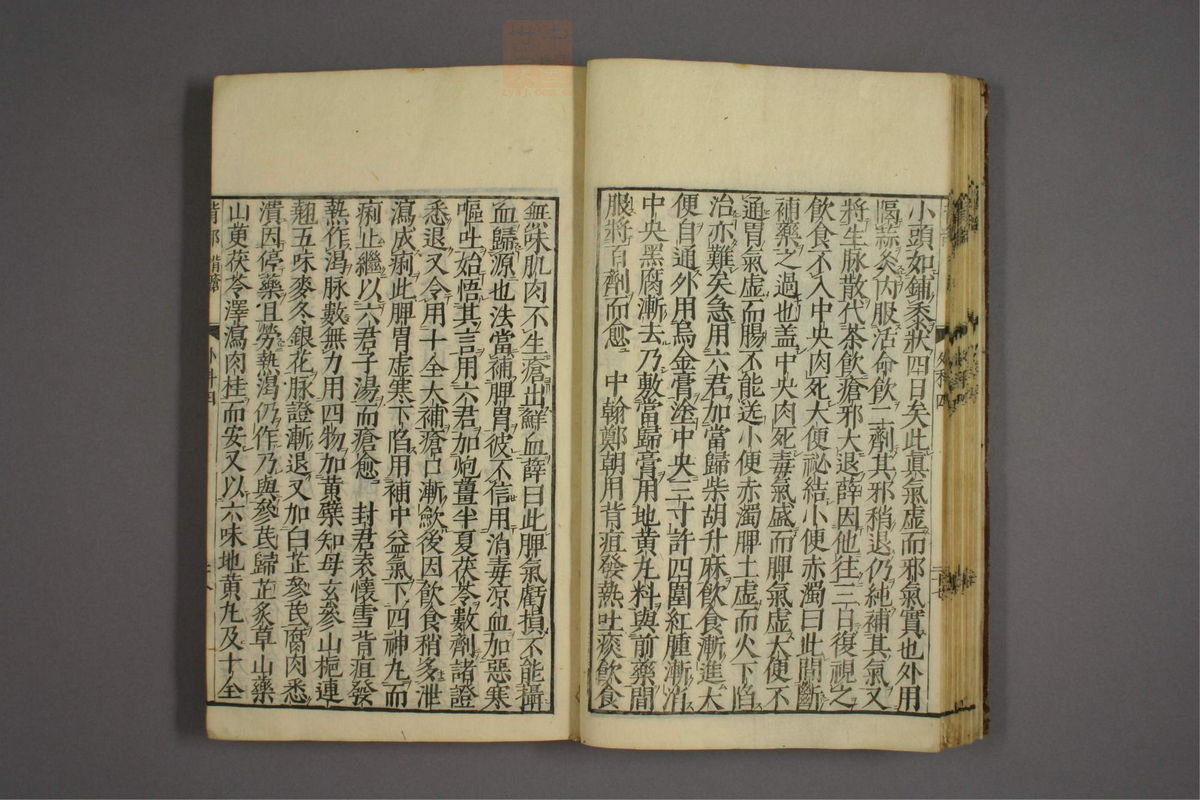 小頭如鋪黍狀四日矣此真氣虛而邪氣實也外用
隔蒜灸内服活命飲二劑其邪稍退仍純補其氣又
將生脉散代茶飲瘡邪大退薛因他往三日復視之
飲食不入中央肉死大便祕結小便赤濁曰此間斷
補藥之過也盖中央肉死毒氣盛而脾氣虛大便不
通胃氣虛而腸不能送小便赤濁脾土虛而火下陷
治亦難矣急用六君加當歸柴胡升麻飲食漸進大
便自通外用烏金膏塗中央三寸許四圍紅腫漸消
中央黑腐漸去乃敷當歸膏用地黄丸料與前藥間
服將百劑而愈 中翰鄭朝用背疽發熱吐痰飲食
無味肌肉不生瘡出鮮血薛曰此脾氣虧損不能攝
血歸源也法當補脾胃彼不信用消毒凉血加惡寒
嘔吐始悟其言用六君加炮薑半夏茯苓數劑諸證
悉退又令用十全大補瘡口漸歛後因飲食稍多泄
瀉成痢此脾胃虚寒下陷用補中益氣下四神丸而
痢止繼以六君子湯而瘡愈 封君袁懷雪背疽發
熱作渴脉數無力用四物加黄蘗知母玄參山梔連
翹五味麥冬銀花脉證漸退又加白芷參芪腐肉悉
潰因停藥且勞熱渴仍作乃與參芪歸芷炙草山藥
山萸茯苓澤瀉肉桂而安又以六味地黄丸及十全